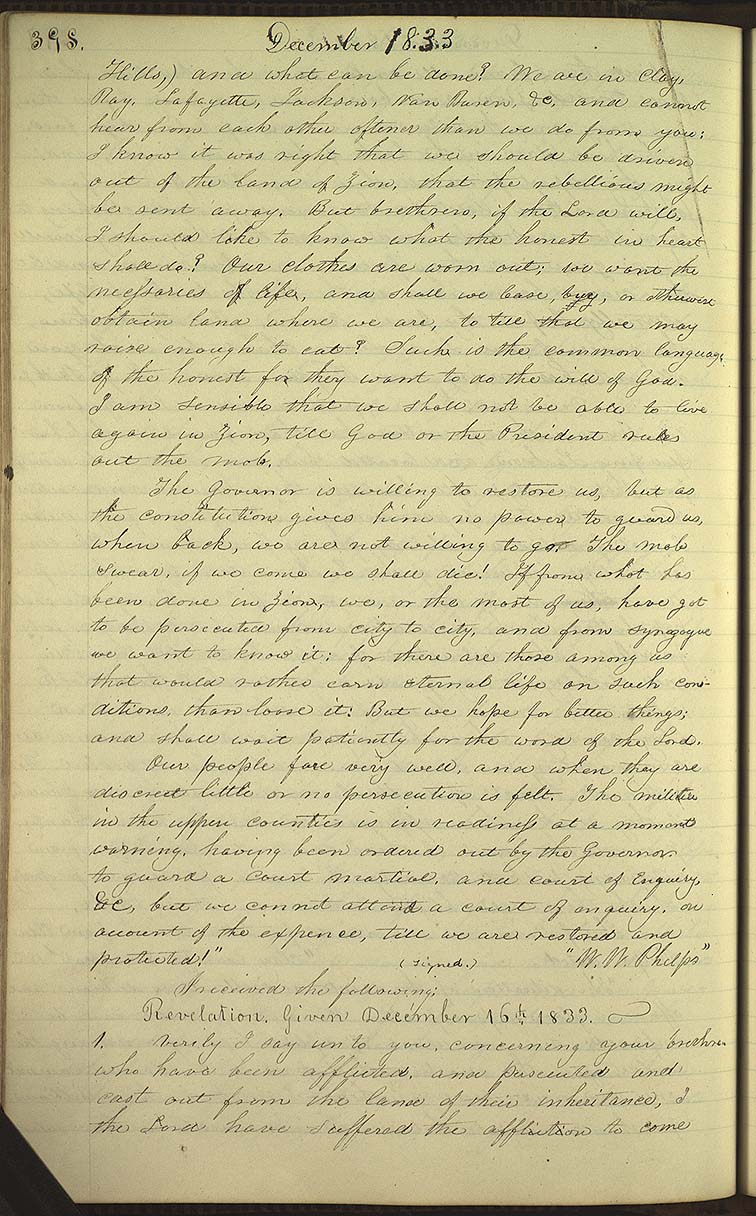 398.
December 1833
Hills,) and what can be done? We are in Clay,
Ray, Lafayette, Jackson, Van Buren, &c. and cannot
hear from each other oftener than we do from you:
I know it was right that we should be driven
out of the land of Zion, that the rebellious might
be sent away. But brethren, if the Lord will,
I should like to know what the honest in heart
shall do? Our clothes are worn out; we want the
necessaries of life, and shall we lease, buy, or otherwise
obtain land where we are, to till that we may
raise enough to eat? Such is the common language
of the honest for they want to do the will of God.
I am sensible that we shall not be able to live
again in Zion, till God or the President rules
out the mob.
The Governor is willing to restore us, but as
the constitution gives him no power to guard us,
when back, we are not willing to go. The mob
swear, if we come we shall die! If from what has
been done in Zion, we, or the most of us, have got
to be persecuted from city to city, and from synagogue
we want to know it; for there are those among us
that would rather earn eternal life on such con-
ditions, than loose it: But we hope for better things;
and shall wait patiently for the word of the Lord.
Our people fare very well, and when they are
discreet little or no persecution is felt. The militia
in the upper counties is in readiness at a moment
warning, having been ordered out by the Governor
to guard a court martial, and court of Enquiry,
&c, but we cannot attend a court of enquiry, on
account of the expence, till we are restored and
protected!" (signed.) "W. W. Phelps"
I received the following;
Revelation, Given December 16th 1833.
1. Verily I say unto you, concerning your brethren
who have been afflicted, and persecuted and
cast out from the land of their inheritance, I
the Lord have suffered the affliction to come